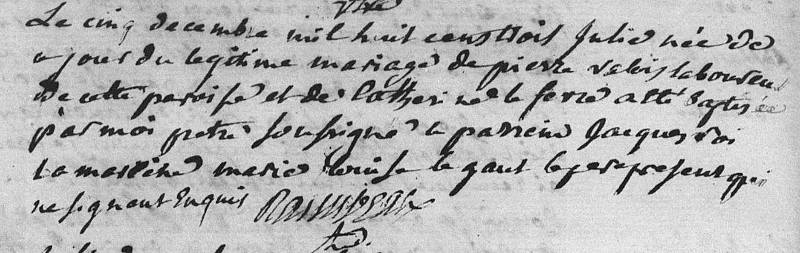 Le cinq decembre mil huit cens trois Julie née de
ce jour du legitime mariage de pierre valois laboureur
de cette paroisse et de Catherine le ferre a été baptisée
par moi pretre soussigné le parrein Jacques Roi
La marrene marie Louise le gaut le pere present qui
ne signent Enquis